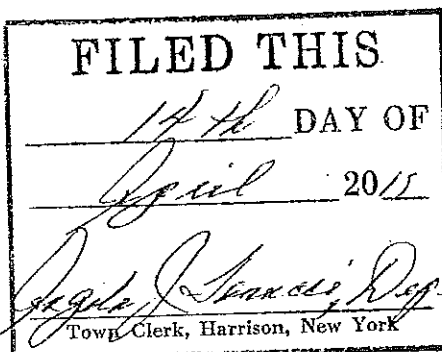 FILED THIS
14th DAY OF
April 2015
Angela J
Town Clerk, Harrison, New York